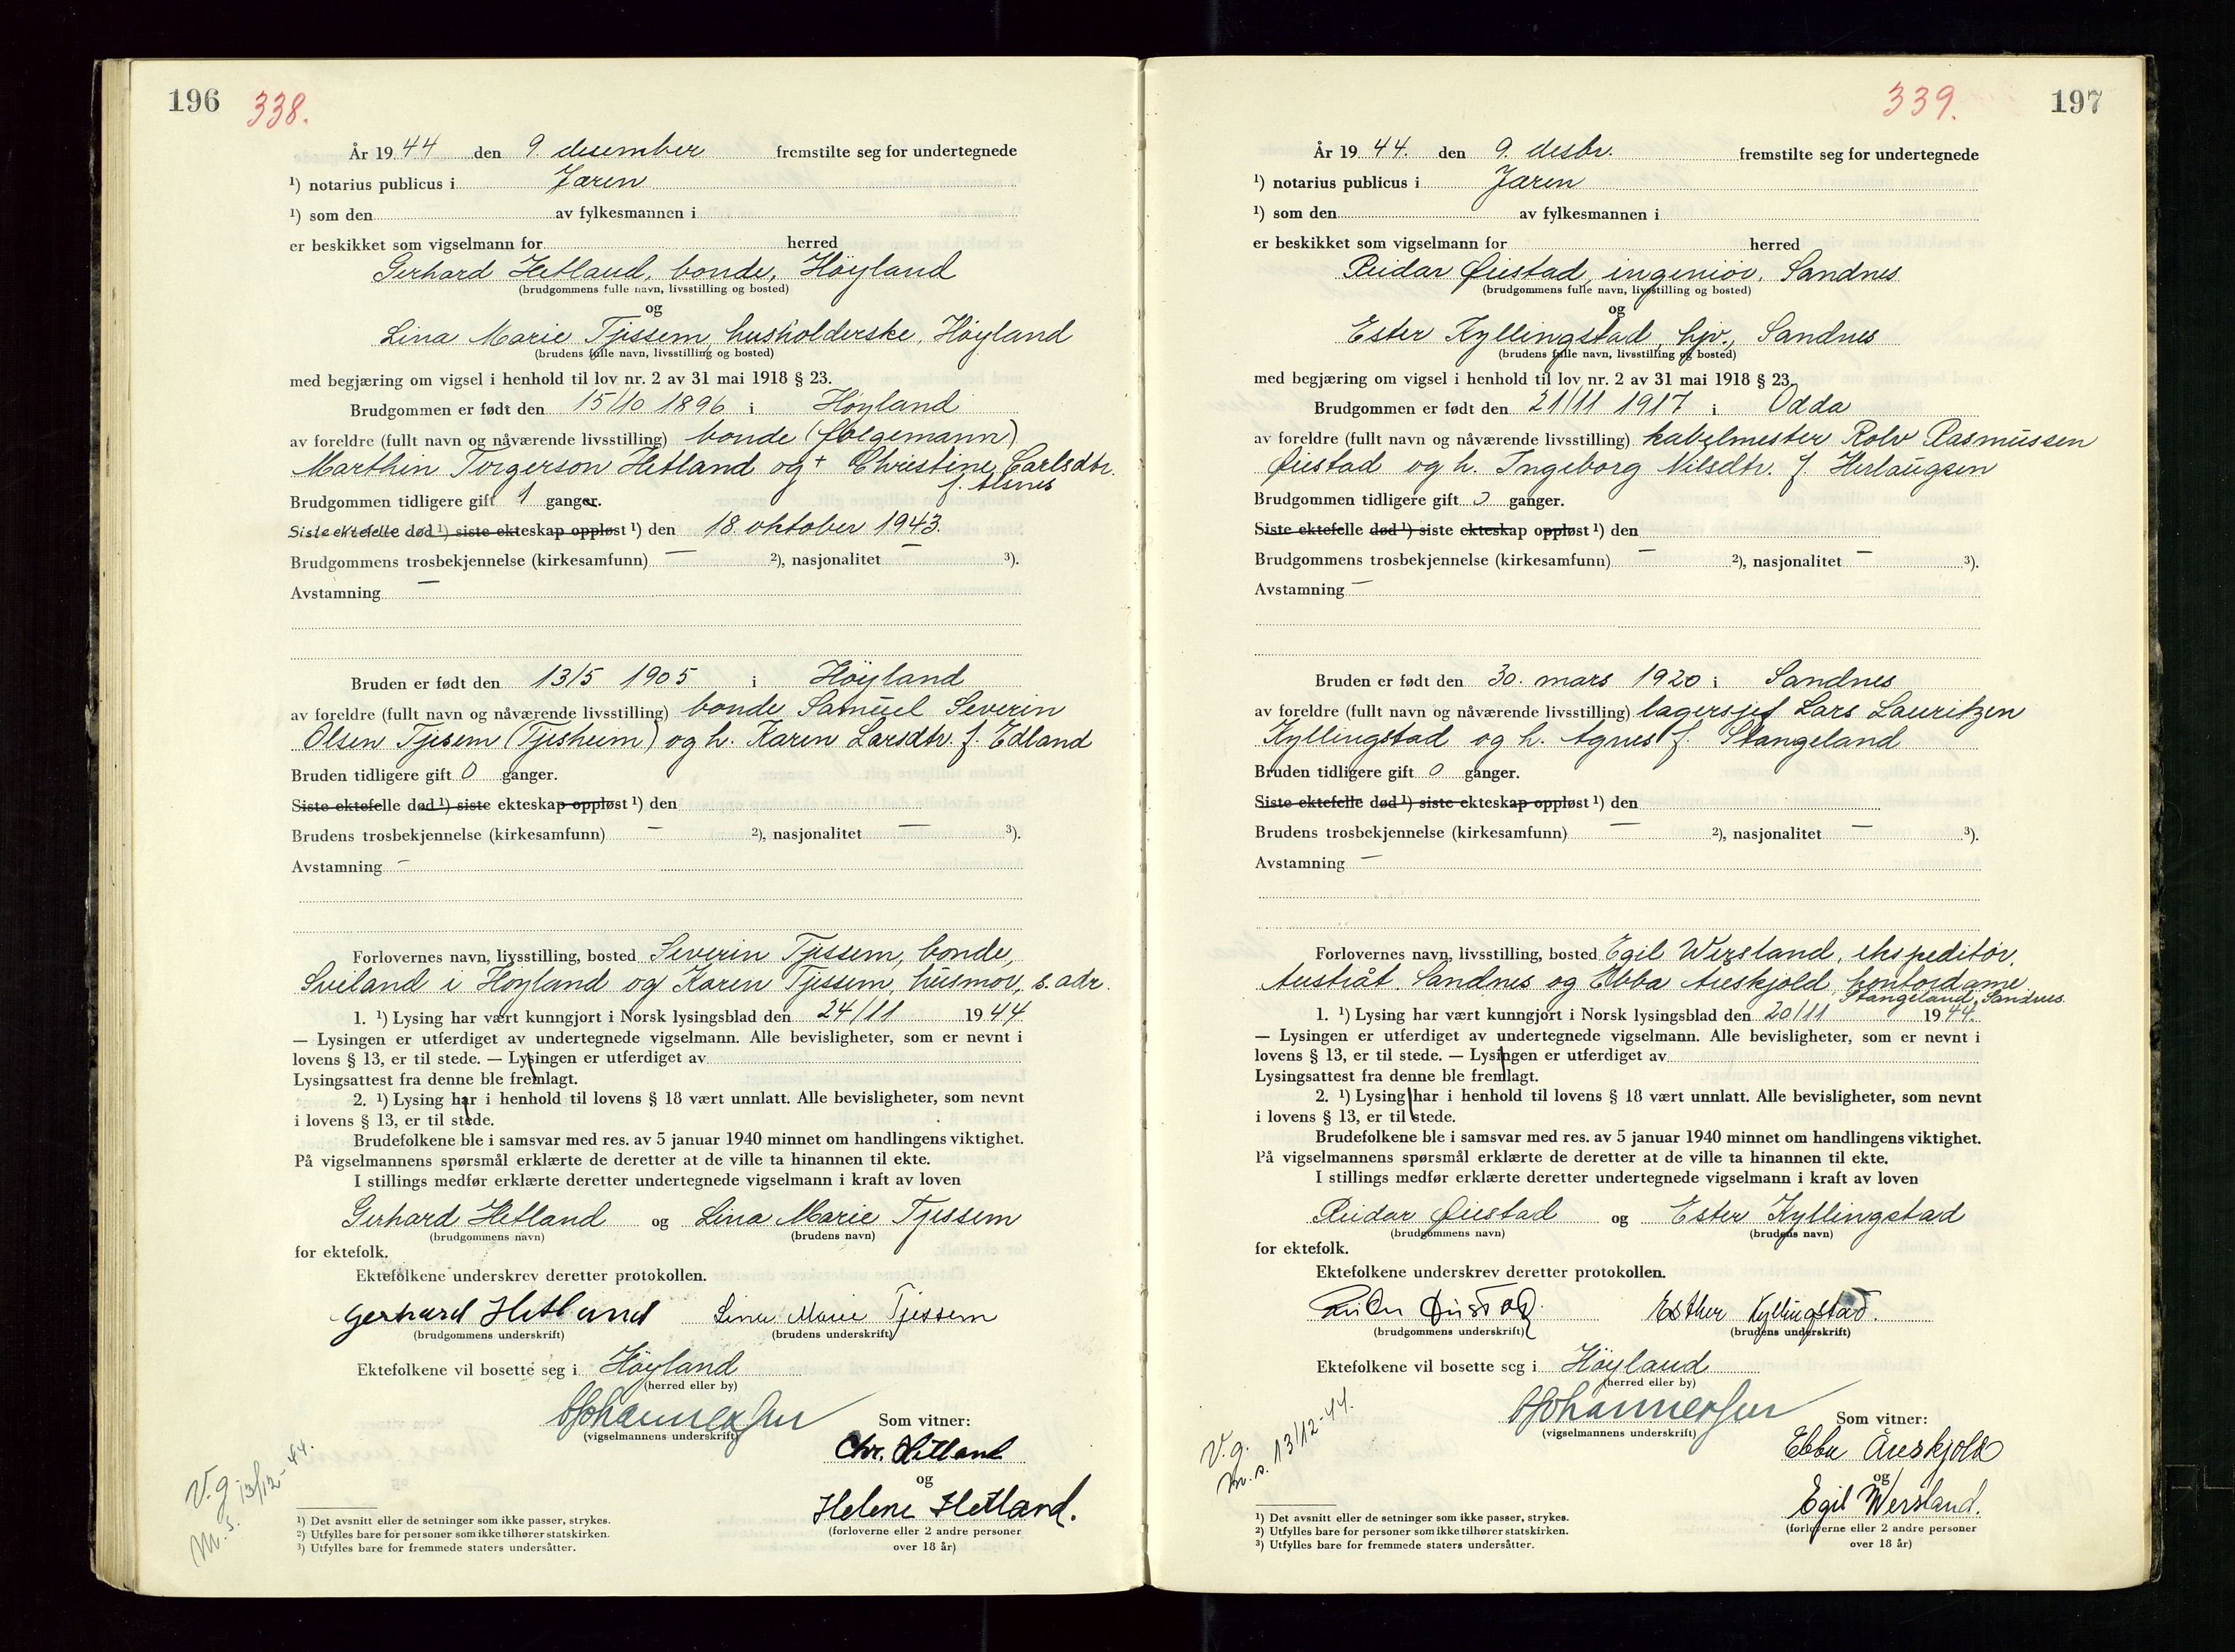 196 338.
År 19 44 den 9. desember fremstilte seg for undertegnede
¹) notarius publicus i Jæren
¹) som den av fylkesmannen i
er beskikket som vigselmann for herred
Gerhard Hetland, bonde, Høyland
(brudgommens fulle navn, livsstilling og bosted)
og
Lina Marie Tjessem, husholderske, Høyland
(brudens fulle navn, livsstilling og bosted)
med begjæring om vigsel i henhold til lov nr. 2 av 31 mai 1918 § 23.
Brudgommen er født den 15/10 1896 i Høyland
av foreldre (fullt navn og nåværende livsstilling) bonde (følgemann)
Marthin Torgerson Hetland og + Christine Carlsdtr.
f. Alsnes
Brudgommen tidligere gift 1 ganger.
Siste ektefelle død ¹) siste ekteskap oppløst ¹) den 18. oktober 1943.
Brudgommens trosbekjennelse (kirkesamfunn) — ²), nasjonalitet — ³).
Avstamning —
Bruden er født den 13/5 1905 i Høyland
av foreldre (fullt navn og nåværende livsstilling) bonde Samuel Severin
Olsen Tjesem (Tjesheim) og h. Karen Larsdtr. f. Edland
Bruden tidligere gift 0 ganger.
Siste ektefelle død ¹) siste ekteskap oppløst ¹) den
Brudens trosbekjennelse (kirkesamfunn) — ²), nasjonalitet — ³).
Avstamning —
Forlovernes navn, livsstilling, bosted Severin Tjessem, bonde,
Sviland i Høyland og Karen Tjessem, husmor, s. adr.
1. ¹) Lysing har vært kunngjort i Norsk lysingsblad den 24/11 1944
— Lysingen er utferdiget av undertegnede vigselmann. Alle bevisligheter, som er nevnt i
lovens § 13, er til stede. — Lysingen er utferdiget av
Lysingsattest fra denne ble fremlagt.
2. ¹) Lysing har i henhold til lovens § 18 vært unnlatt. Alle bevisligheter, som nevnt
i lovens § 13, er til stede.
Brudefolkene ble i samsvar med res. av 5 januar 1940 minnet om handlingens viktighet.
På vigselmannens spørsmål erklærte de deretter at de ville ta hinannen til ekte.
I stillings medfør erklærte deretter undertegnede vigselmann i kraft av loven
Gerhard Hetland og Lina Marie Tjessem
(brudgommens navn) (brudens navn)
for ektefolk.
Ektefolkene underskrev deretter protokollen.
Gerhard Hetland Lina Marie Tjessem
(brudgommens underskrift) (brudens underskrift)
Ektefolkene vil bosette seg i Høyland
(herred eller by)
Johannessen
(vigselmannens underskrift)
Som vitner:
Chr. Hetland
og
Helene Hetland.
(forloverne eller 2 andre personer
over 18 år)
V.g. 13/12-44.
M.s.
¹) Det avsnitt eller de setninger som ikke passer, strykes.
²) Utfylles bare for personer som ikke tilhører statskirken.
³) Utfylles bare for fremmede staters undersåtter.
339. 197
År 19 44. den 9. desbr. fremstilte seg for undertegnede
¹) notarius publicus i Jæren
¹) som den av fylkesmannen i
er beskikket som vigselmann for herred
Reidar Øiestad, ingeniør, Sandnes
(brudgommens fulle navn, livsstilling og bosted)
og
Ester Kyllingstad, hjv., Sandnes
(brudens fulle navn, livsstilling og bosted)
med begjæring om vigsel i henhold til lov nr. 2 av 31 mai 1918 § 23.
Brudgommen er født den 21/11 1917 i Odda
av foreldre (fullt navn og nåværende livsstilling) kabelmester Rolv Rasmussen
Øiestad og h. Ingeborg Nilsdtr. f. Herlaugsen
Brudgommen tidligere gift 0 ganger.
Siste ektefelle død ¹) siste ekteskap oppløst ¹) den
Brudgommens trosbekjennelse (kirkesamfunn) — ²), nasjonalitet — ³).
Avstamning —
Bruden er født den 30. mars 1920 i Sandnes
av foreldre (fullt navn og nåværende livsstilling) lagersjef Lars Lauritzen
Kyllingstad og h. Agnes f. Stangeland
Bruden tidligere gift 0 ganger.
Siste ektefelle død ¹) siste ekteskap oppløst ¹) den
Brudens trosbekjennelse (kirkesamfunn) — ²), nasjonalitet — ³).
Avstamning —
Forlovernes navn, livsstilling, bosted Egil Wersland, ekspeditør,
Austråt, Sandnes og Ebba Aueskjold, kontordame
Stangeland, Sandnes.
1. ¹) Lysing har vært kunngjort i Norsk lysingsblad den 20/11 1944.
— Lysingen er utferdiget av undertegnede vigselmann. Alle bevisligheter, som er nevnt i
lovens § 13, er til stede. — Lysingen er utferdiget av
Lysingsattest fra denne ble fremlagt.
2. ¹) Lysing har i henhold til lovens § 18 vært unnlatt. Alle bevisligheter, som nevnt
i lovens § 13, er til stede.
Brudefolkene ble i samsvar med res. av 5 januar 1940 minnet om handlingens viktighet.
På vigselmannens spørsmål erklærte de deretter at de ville ta hinannen til ekte.
I stillings medfør erklærte deretter undertegnede vigselmann i kraft av loven
Reidar Øiestad og Ester Kyllingstad
(brudgommens navn) (brudens navn)
for ektefolk.
Ektefolkene underskrev deretter protokollen.
Reidar Øiestad. Esther Kyllingstad.
(brudgommens underskrift) (brudens underskrift)
Ektefolkene vil bosette seg i Høyland
(herred eller by)
Johannessen
(vigselmannens underskrift)
Som vitner:
Ebba Aueskjold
og
Egil Wersland.
(forloverne eller 2 andre personer
over 18 år)
V.g.
m.s. 13/12-44.
¹) Det avsnitt eller de setninger som ikke passer, strykes.
²) Utfylles bare for personer som ikke tilhører statskirken.
³) Utfylles bare for fremmede staters undersåtter.